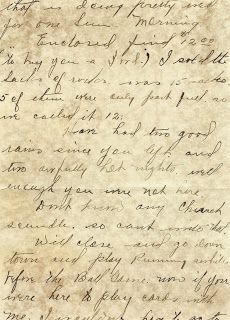 that is doing pretty well
for one Sun. Morning
Enclored find $12.00
to buy you a Ford) I sold the
Sacks of rocks was 15 sacks
5 of them were only part full so
we called it 12.
Have had two good
rains since you left and
two awfully hot nights, well
enough you were not here.
Dont know any Church
scandle. so cant write that
Will close and go down
town and play Running while
before the Ball Game. now if you
were here to play cards with
me I